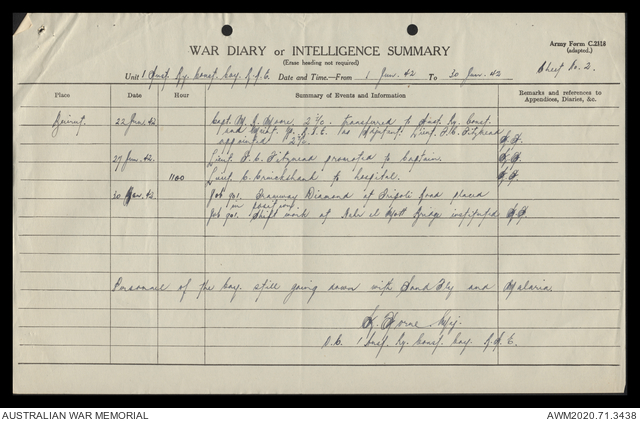 WAR DIARY or INTELLIGENCE SUMMARY
Army Form C.2118
(adapted.)
(Erase heading not required)
Unit 1 Aust Ry. Const. Coy. R.A.E. Date and Time.—From 1 Jun. 42 To 30 Jun. 42
Sheet No. 2.
Place Date Hour Summary of Events and Information Remarks and references to Appendices, Diaries, &c.
Beirut 22 Jun. 42 Capt. M. A. Moore, 2 I/C. transferred to Aust Ry. Const.
and Maint. Gp. R.A.E. as Adjutant. Lieut.
appointed 2 I/C.
27 Jun. 42. Lieut. promoted to Captain.
1100 Lieut. C. Cruickshank to hospital.
30 Jun. 42 Job 901. Tramway Diamond at Tripoli Road placed
in position
Job 901. Shift work at Nahr el Mott Bridge instituted
Personnel of the Coy. still going down with Sand Fly and Malaria.
Horne Maj.
O.C. 1 Aust. Ry. Const. Coy. R.A.E.
AUSTRALIAN WAR MEMORIAL
AWM2020.71.3438